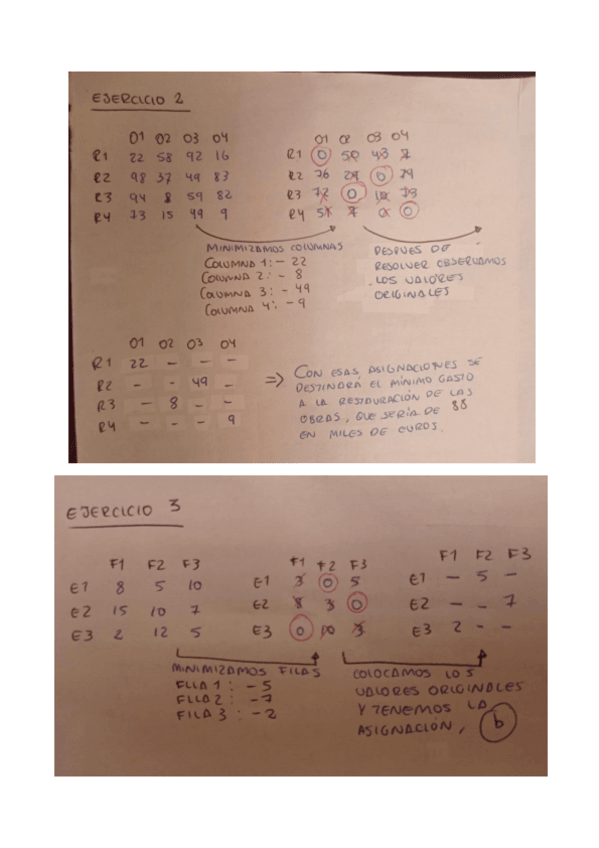 EJERCICIO 2
O1 O2 O3 O4
R1 22 58 92 16
R2 98 37 49 83
R3 94 8 59 82
R4 73 15 49 9
O1 O2 O3 O4
R1 0 50 43 7
R2 76 29 0 74
R3 72 0 10 73
R4 51 7 0 0
MINIMIZAMOS COLUMNAS
COLUMNA 1: - 22
COLUMNA 2: - 8
COLUMNA 3: - 49
COLUMNA 4: - 9
DESPUES DE
RESOLVER OBSERVAMOS
LOS VALORES
ORIGINALES
O1 O2 O3 O4
R1 22 - - -
R2 - - 49 -
R3 - 8 - -
R4 - - - 9
=> CON ESAS ASIGNACIONES SE
DESTINARÁ EL MÍNIMO GASTO
A LA RESTAURACIÓN DE LAS
OBRAS, QUE SERÍA DE 88
EN MILES DE EUROS.
EJERCICIO 3
F1 F2 F3
E1 8 5 10
E2 15 10 7
E3 2 12 5
F1 F2 F3
E1 3 0 5
E2 8 3 0
E3 0 10 3
F1 F2 F3
E1 - 5 -
E2 - - 7
E3 2 - -
MINIMIZAMOS FILAS
FILA 1: - 5
FILA 2: - 7
FILA 3: - 2
COLOCAMOS LOS
VALORES ORIGINALES
Y TENEMOS LA
ASIGNACIÓN, b